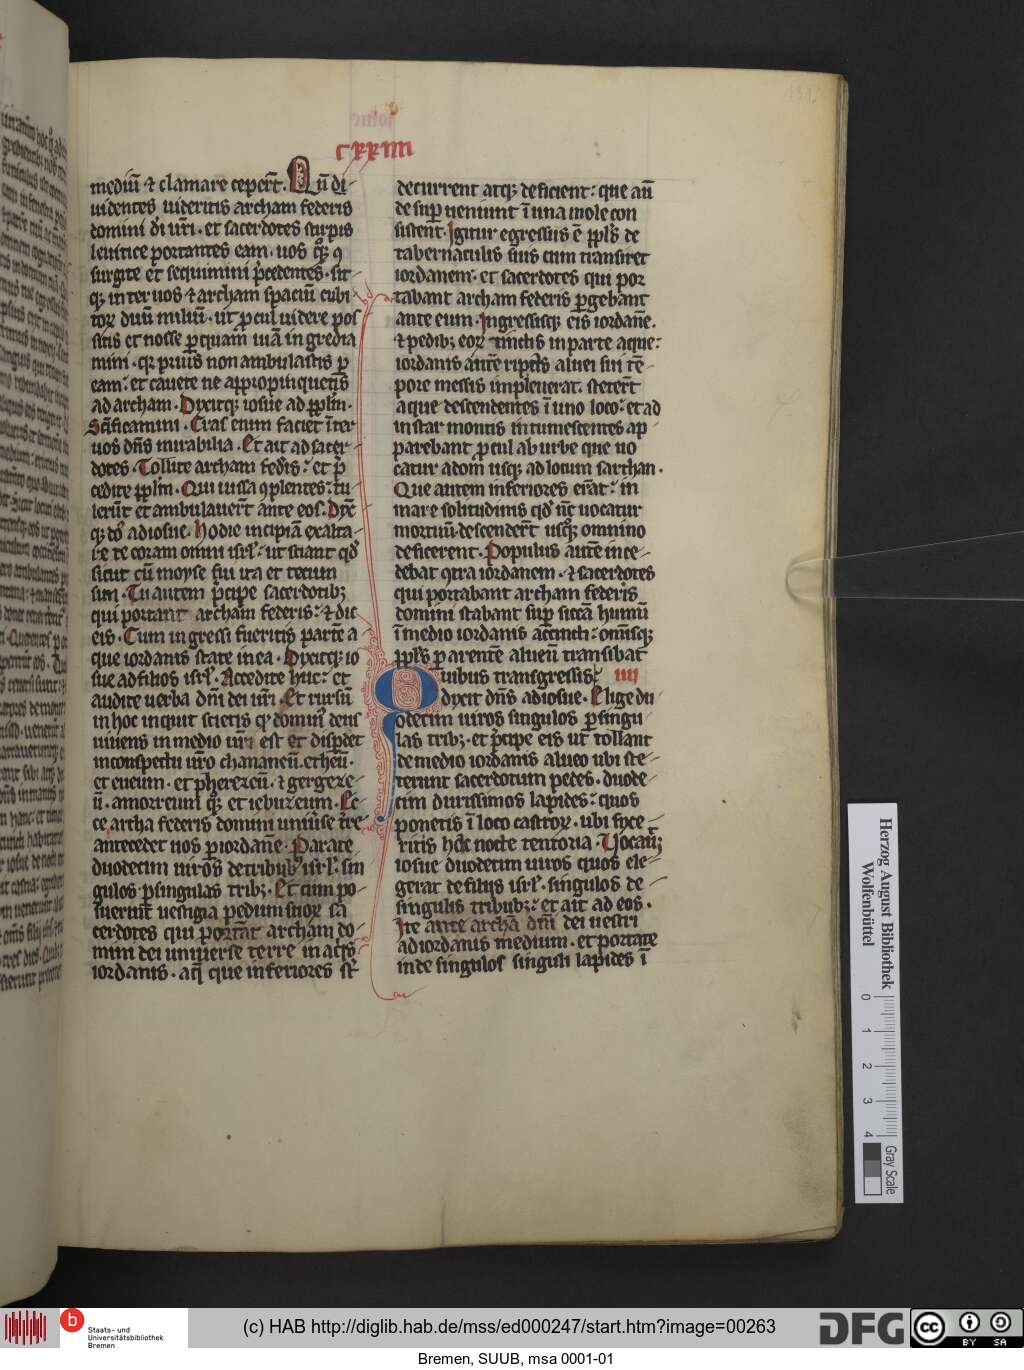 cxxiiii
mediū ⁊ clamare ceper̄t. Qn̄ di-
uidentes uideritis archam federis
domini dī uri. et sacerdotes stirpis
leuitice portantes eam. uos qꝫ ꝯ
surgite et sequimini p̄cedentes. sit
qꝫ inter uos ⁊ archam spaciū cubi
toꝝ duū miliū. ut ꝓcul uidere pos
sitis et nosse ꝑ quam̄ uiā ingredia
mini. qꝛ priꝰ non ambulastis ꝑ
eam: et cauete ne appropinquetis
ad archam. Dixitqꝫ iosue ad pplm.
Sc̄ificamini. Cras enim faciet īter
uos dn̄s mirabilia. Et ait ad sacer-
dotes. Tollite archam fedis: et p̄
cedite pplm. Qui iussa ꝯplentes: tu
lerūt et ambulauer̄t ante eos. Dix̄
qꝫ dn̄s ad iosue. Hodie incipiā exalta-
re te coram omni isrl: ut sciant qd̄
sicut cū moyse fui ita et tecum
sim. Tu autem p̄cipe sacerdotibꝫ
qui portant archam federis: ⁊ dic
eis. Cum ingressi fueritis partē a
que iordanis state in ea. Dixitqꝫ io
sue ad filios isrl. Accedite huc: et
audite uerba dn̄i dei uri. Et rursū
in hoc inquit scietis qꝫ dominꝰ deus
uiuens in medio uri est et disꝑdet
in conspectu uro chananeū. etheū.
et eueum. et pherezeū. ⁊ gergeze-
ū. amorreum qꝫ et iebuzeum. Ec-
ce archa federis domini uniuse tr̄re
antecedet uos ꝑ iordanē. Parate
duodecim uiros de tribubꝰ isrl. sin
gulos ꝑ singulas tribꝫ. Et cum po-
suerint uestigia pedum suoꝝ sa
cerdotes qui portāt archam do-
mini dei uniuerse terre in aqͥs
iordanis. aq̄ que inferiores sūt
decurrent atqꝫ deficient: que aū
desuꝑ ueniunt ī una mole con
sistent. Igitur egressus ē pplꝰ de
tabernaculis suis cum transiret
iordanem: et sacerdotes qui por
tabant archam federis ꝑgebant
ante eum. Ingressisqꝫ eis iordanē.
⁊ pedibꝫ eoꝝ tinctis in parte aque:
iordanis autē ripas aluei sui tē-
pore messis impleuerat. steter̄t
aque descendentes ī uno loco: et ad
instar montis intumescentes ap-
parebant ꝓcul ab urbe que uo
catur adom usqꝫ ad locum sarthan.
Que autem inferiores er̄at: in
mare solitudinis qd̄ nūc uocatur
mortuū. descender̄t usqꝫ omnino
deficerent. Populus autē ince-
debat ꝯtra iordanem. ⁊ sacerdotes
qui portabant archam federis
domini stabant suꝑ siccā humū
ī medio iordanis accincti: om̄isqꝫ
pplꝰ ꝑ arentē alueū transibat
Quibus transgressis: iiii
dixit dn̄s ad iosue. Elige du-
odecim uiros singulos ꝑ singu
las tribꝫ. et p̄cipe eis ut tollant
de medio iordanis alueo ubi ste-
terunt sacerdotum pedes. duode-
cim durissimos lapides: quos
ponetis ī loco castroꝝ. ubi fixe-
ritis hac nocte tentoria. Uocauitqꝫ
iosue duodecim uiros quos ele-
gerat de filiis isrl. singulos de
singulis tribubꝫ: et ait ad eos.
Ite ante archā dn̄i dei uestri
ad iordanis medium. et portate
inde singulos singuli lapides ī
Herzog August Bibliothek
Wolfenbüttel
0 1 2 3 4
Gray Scale
b
Staats- und
Universitätsbibliothek
Bremen
(c) HAB http://diglib.hab.de/mss/ed000247/start.htm?image=00263
DFG
cc BY SA
Bremen, SUUB, msa 0001-01